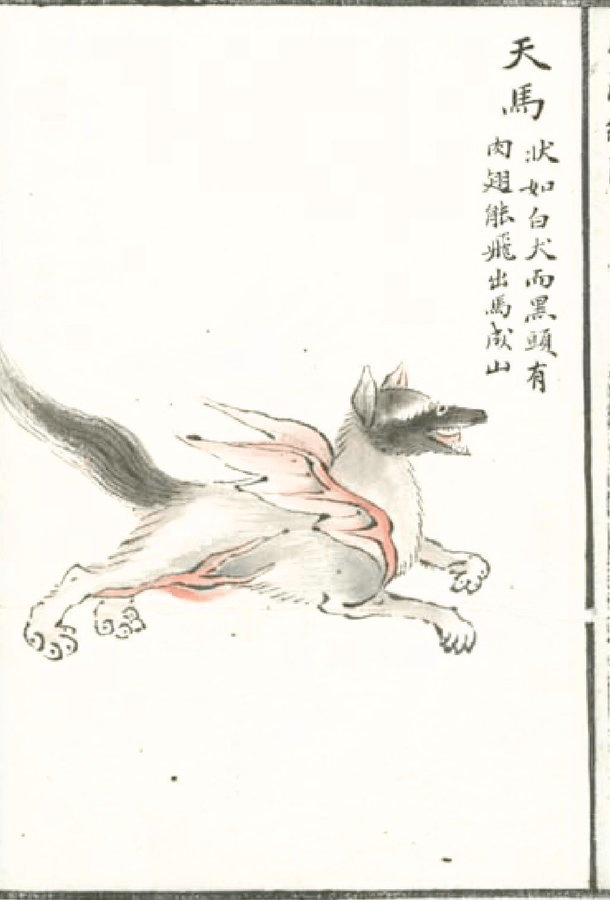 天馬
狀如白犬而黑頭有
肉翅能飛出馬成山